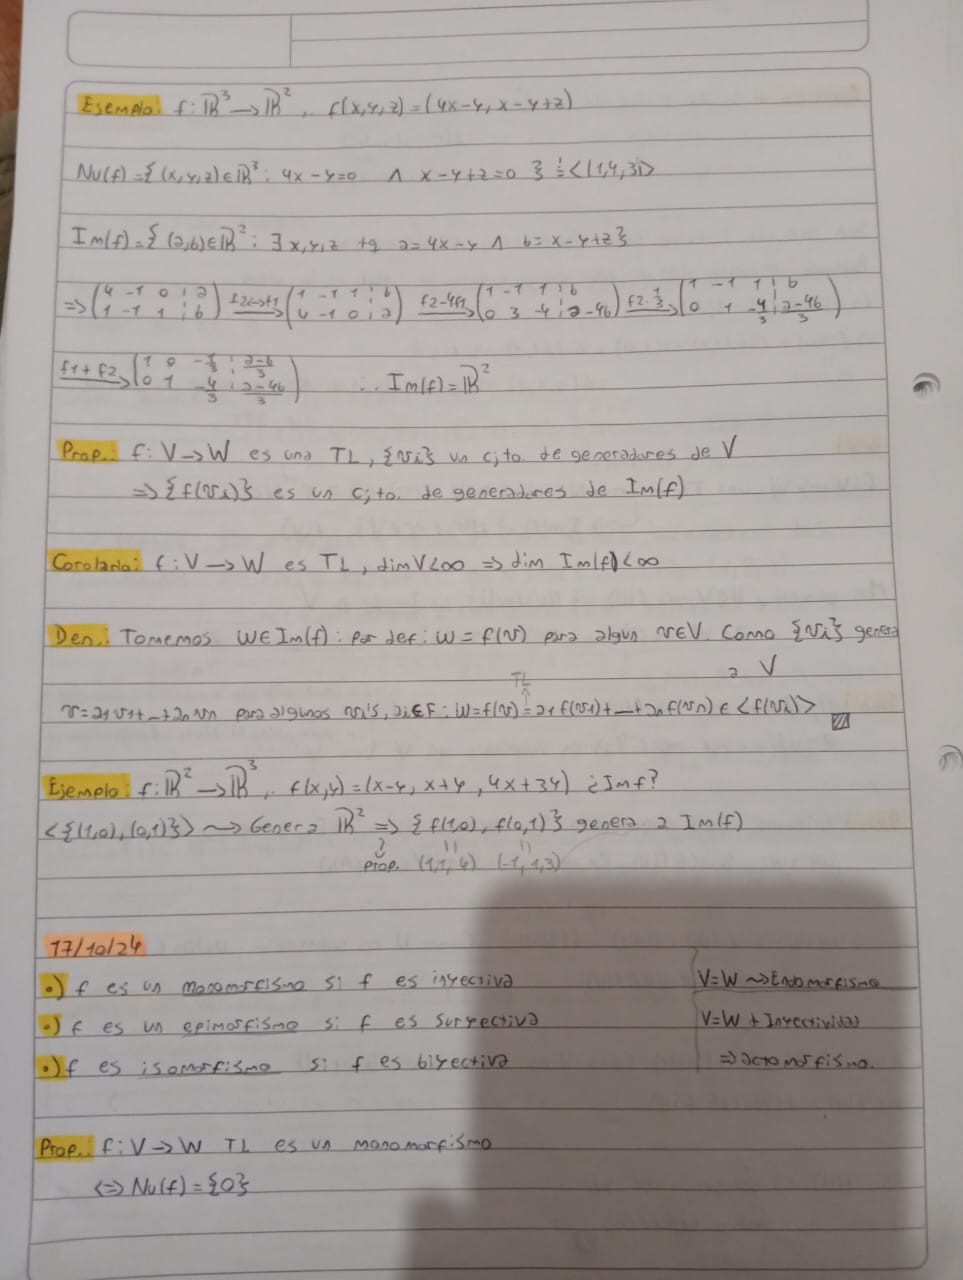 Ejemplo: f: ℝ³ → ℝ², f(x,y,z) = (4x-y, x-y+z)
Nu(f) = { (x,y,z) ∈ ℝ³ : 4x-y=0 ∧ x-y+z=0 } = <(1,4,3)>
Im(f) = { (a,b) ∈ ℝ² : ∃ x,y,z tq a=4x-y ∧ b=x-y+z }
=> (4 -1 0 ¦ a / 1 -1 1 ¦ b) f2<->f1 → (1 -1 1 ¦ b / 4 -1 0 ¦ a) f2-4f1 → (1 -1 1 ¦ b / 0 3 -4 ¦ a-4b) f2·1/3 → (1 -1 1 ¦ b / 0 1 -4/3 ¦ a-4b/3)
f1+f2 → (1 0 -1/3 ¦ a-b/3 / 0 1 -4/3 ¦ a-4b/3) ∴ Im(f) = ℝ²
Prop.: f: V → W es una TL, {vi} un cjto. de generadores de V
=> {f(vi)} es un cjto. de generadores de Im(f)
Corolario: f: V → W es TL, dim V<∞ => dim Im(f)<∞
Dem.: Tomemos W∈Im(f): por def: W = f(v) para algun v∈V. Como {vi} genera
a V
TL
v=a1v1+...+anvn para algunos vi's, ai∈F: W=f(v)=a1f(v1)+...+anf(vn) ∈ <f(vi)>
Ejemplo: f: ℝ² → ℝ³, f(x,y) = (x-y, x+y, 4x+3y) ¿Imf?
<{(1,0), (0,1)}> ~> Genera ℝ² => { f(1,0), f(0,1) } genera a Im(f)
Prop. (1,1,4) (-1,1,3)
17/10/24
•) f es un monomorfismo si f es inyectiva
•) f es un epimorfismo si f es suryectiva
•) f es isomorfismo si f es biyectiva
V=W ~> Endomorfismo
V=W + Inyectividad
=> actomorfismo.
Prop.: f: V → W TL es un monomorfismo
<=> Nu(f) = {0}